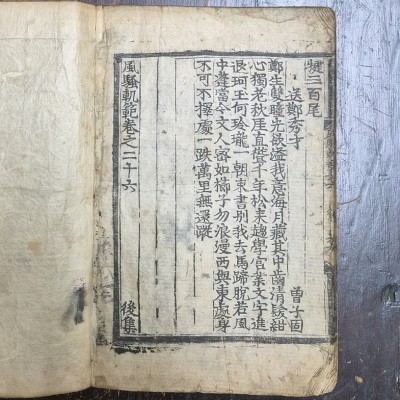 三百尾
送鄭秀才 曾子固
鄭生雙瞳光欲溢我意海月藏其中齒清髮紺
心獨老秋崖直聳千年松來趨學官業文字進
退珮玉何玲瓏一朝束書別我去馬蹄脫若風
中蓬當今文人密如櫛子勿浪漫西與東處身
不可不擇處一跌萬里無還蹤
風騷軌範卷之二十六 後集